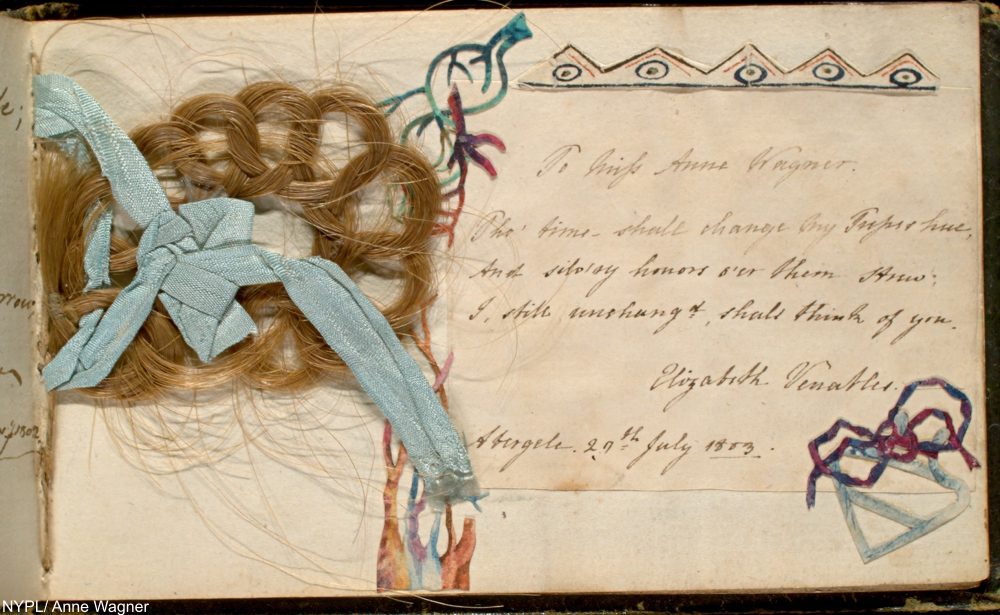 To Miss Anne Wagner.
Tho' time shall change my Tresses hue,
And silv'ry honors o'er them strew:
I, still unchang'd, shall think of you.
Elizabeth Venables.
Abergele. 27th July 1803.
1802
NYPL/ Anne Wagner